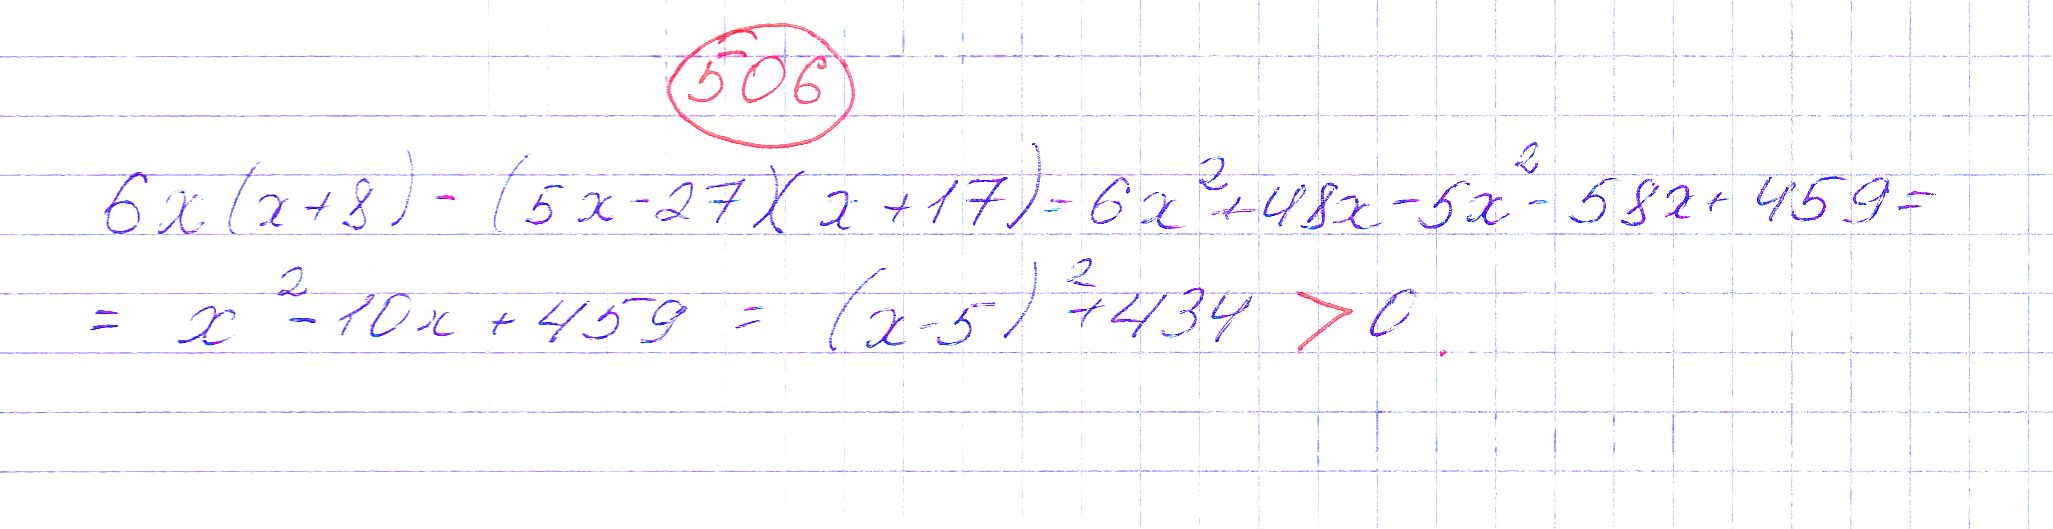 506
6x(x+8) - (5x-27)(x+17) = 6x²+48x-5x²-58x+459=
= x²-10x+459 = (x-5)²+434 > 0.